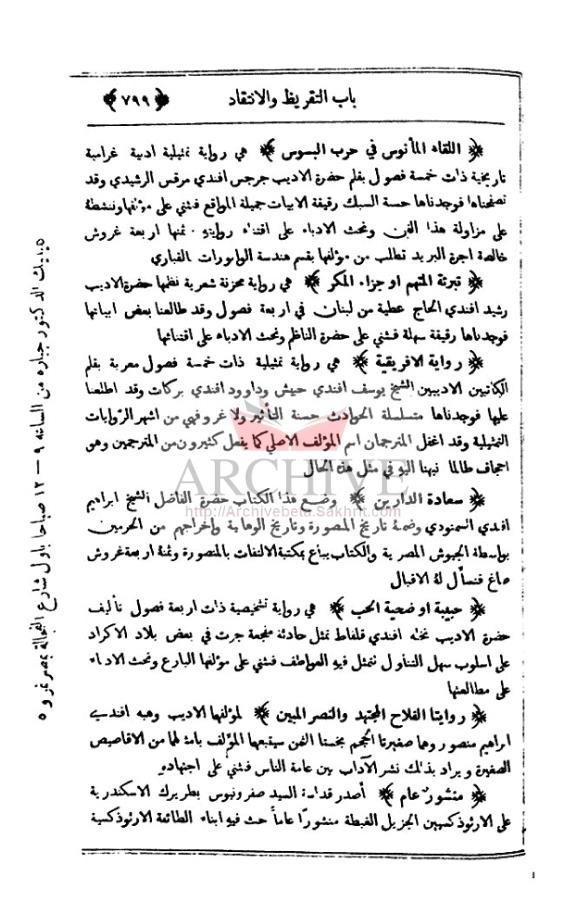 باب التقريظ والانتقاد
﴿ ٧٩٩ ﴾
﴿ اللقاء المأنوس في حرب البسوس ﴾ هي رواية تمثيلية ادبية غرامية
تاريخية ذات خمسة فصول بقلم حضرة الاديب جرجس افندي مرقس الرشيدي وقد
تصفحناها فوجدناها حسنة السبك رقيقة الابيات جميلة المواقع فنثني على مؤلفها وننشطه
على مزاولة هذا الفن ونحث الادباء على اقتناء روايته وثمنها اربعة غروش
خالصة اجرة البريد تطلب من مؤلفها بقسم هندسة الوابورات بالقباري
﴿ تبرئة المتهم او جزاء المكر ﴾ هي رواية محزنة شعرية نظمها حضرة الاديب
رشيد افندي الحاج عطية من لبنان في اربعة فصول وقد طالعنا بعض ابياتها
فوجدناها رقيقة سهلة فنثني على حضرة الناظم ونحث الادباء على اقتنائها
﴿ رواية الافريقية ﴾ هي رواية تمثيلية ذات خمسة فصول معربة بقلم
الكاتبين الاديبين الشيخ يوسف افندي حبيش وداوود افندي بركات وقد اطلعنا
عليها فوجدناها متسلسلة الحوادث حسنة التأثير ولا غرو فهي من اشهر الروايات
التمثيلية وقد اغفل المترجمان اسم المؤلف الاصلي كما يفعل كثيرون من المترجمين وهو
اجحاف طالما نبهنا اليه في مثل هذه الحال
ARCHIVE
http://Archivebeta.Sakhrit.com
﴿ سعادة الدارين ﴾ وضع هذا الكتاب حضرة الفاضل الشيخ ابراهيم
افندي السمنودي وضمنه تاريخ المنصورة وتاريخ الوهابية واخراجهم من الحرمين
بواسطة الجيوش المصرية والكتاب يباع بمكتبة الالفات بالمنصورة وثمنه اربعة غروش
صاغ فنسأل له الاقبال
﴿ حبيبة او ضحية الحب ﴾ هي رواية تشخيصية ذات اربعة فصول تأليف
حضرة الاديب نخله افندي قلفاط تمثل حادثة مفجعة جرت في بعض بلاد الاكراد
على اسلوب سهل التناول تتمثل فيه العواطف فنثني على مؤلفها البارع ونحث الادباء
على مطالعتها
﴿ روايتا الفلاح المجتهد والنصر المبين ﴾ لمؤلفها الاديب وهبه افندي
ابراهيم منصور وهما صغيرتا الحجم بخستا الثمن سيتبعها المؤلف بامثالهما من الاقاصيص
الصغيرة ويراد بذلك نشر الآداب بين عامة الناس فنثني على اجتهاده
﴿ منشور عام ﴾ أصدر قداسة السيد صفرونيوس بطريرك الاسكندرية
على الارثوذكسيين الجزيل الغبطة منشورًا عاماً حث فيه ابناء الطائفة الارثوذكسية
الدكتور جباره من الساعه ٩ — ١٢ صباحا باول شارع الفجالة بمصر نمرو ٥